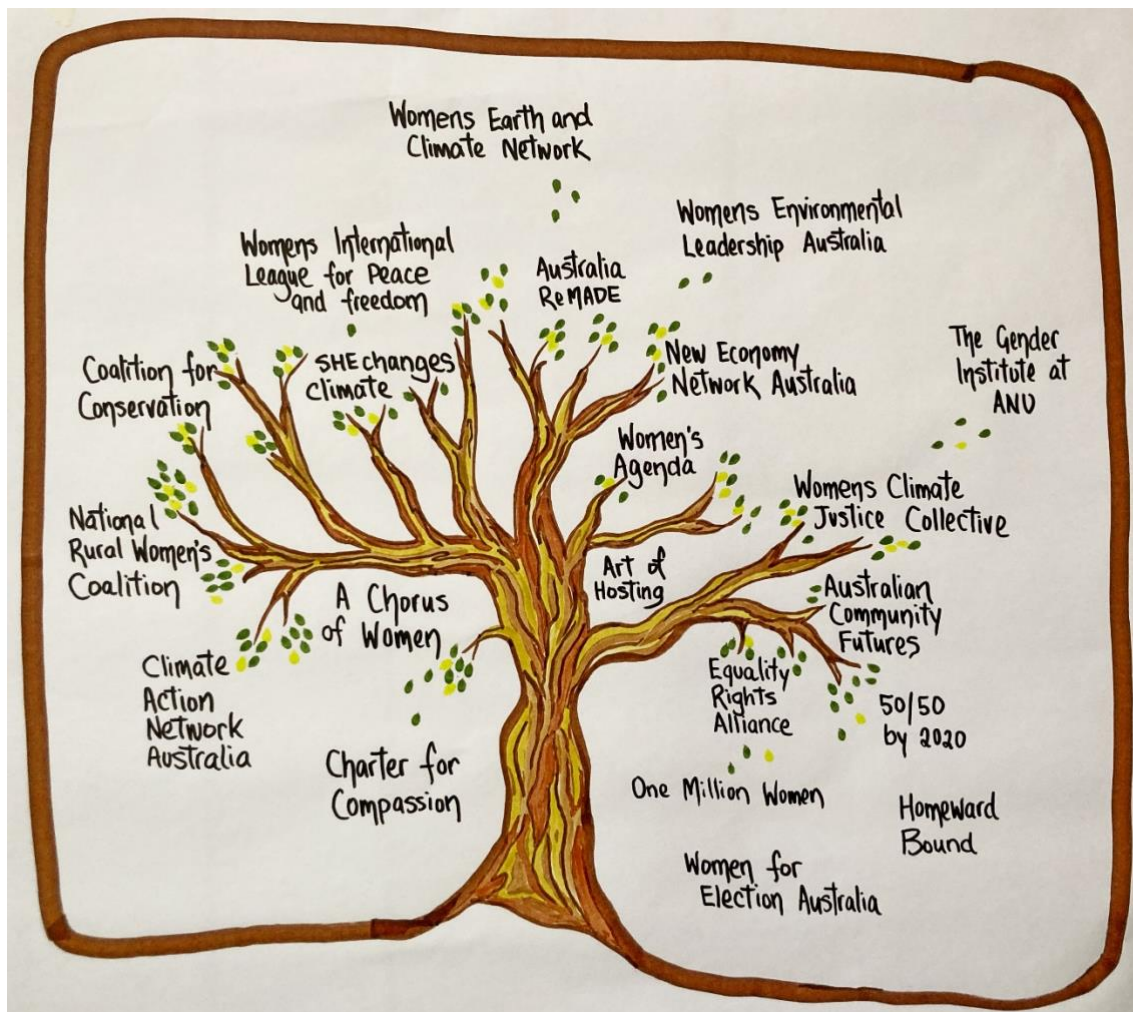 Womens Earth and
Climate Network
Womens Environmental
Leadership Australia
Womens International
League for Peace
and freedom
Australia
ReMADE
The Gender
Institute at
ANU
Coalition for
Conservation
SHE changes
Climate
New Economy
Network Australia
Women's
Agenda
Womens Climate
Justice Collective
National
Rural Women's
Coalition
Art of
Hosting
A Chorus
of Women
Australian
Community
Futures
Climate
Action
Network
Australia
Equality
Rights
Alliance
50/50
by 2020
Charter for
Compassion
One Million Women
Homeward
Bound
Women for
Election Australia